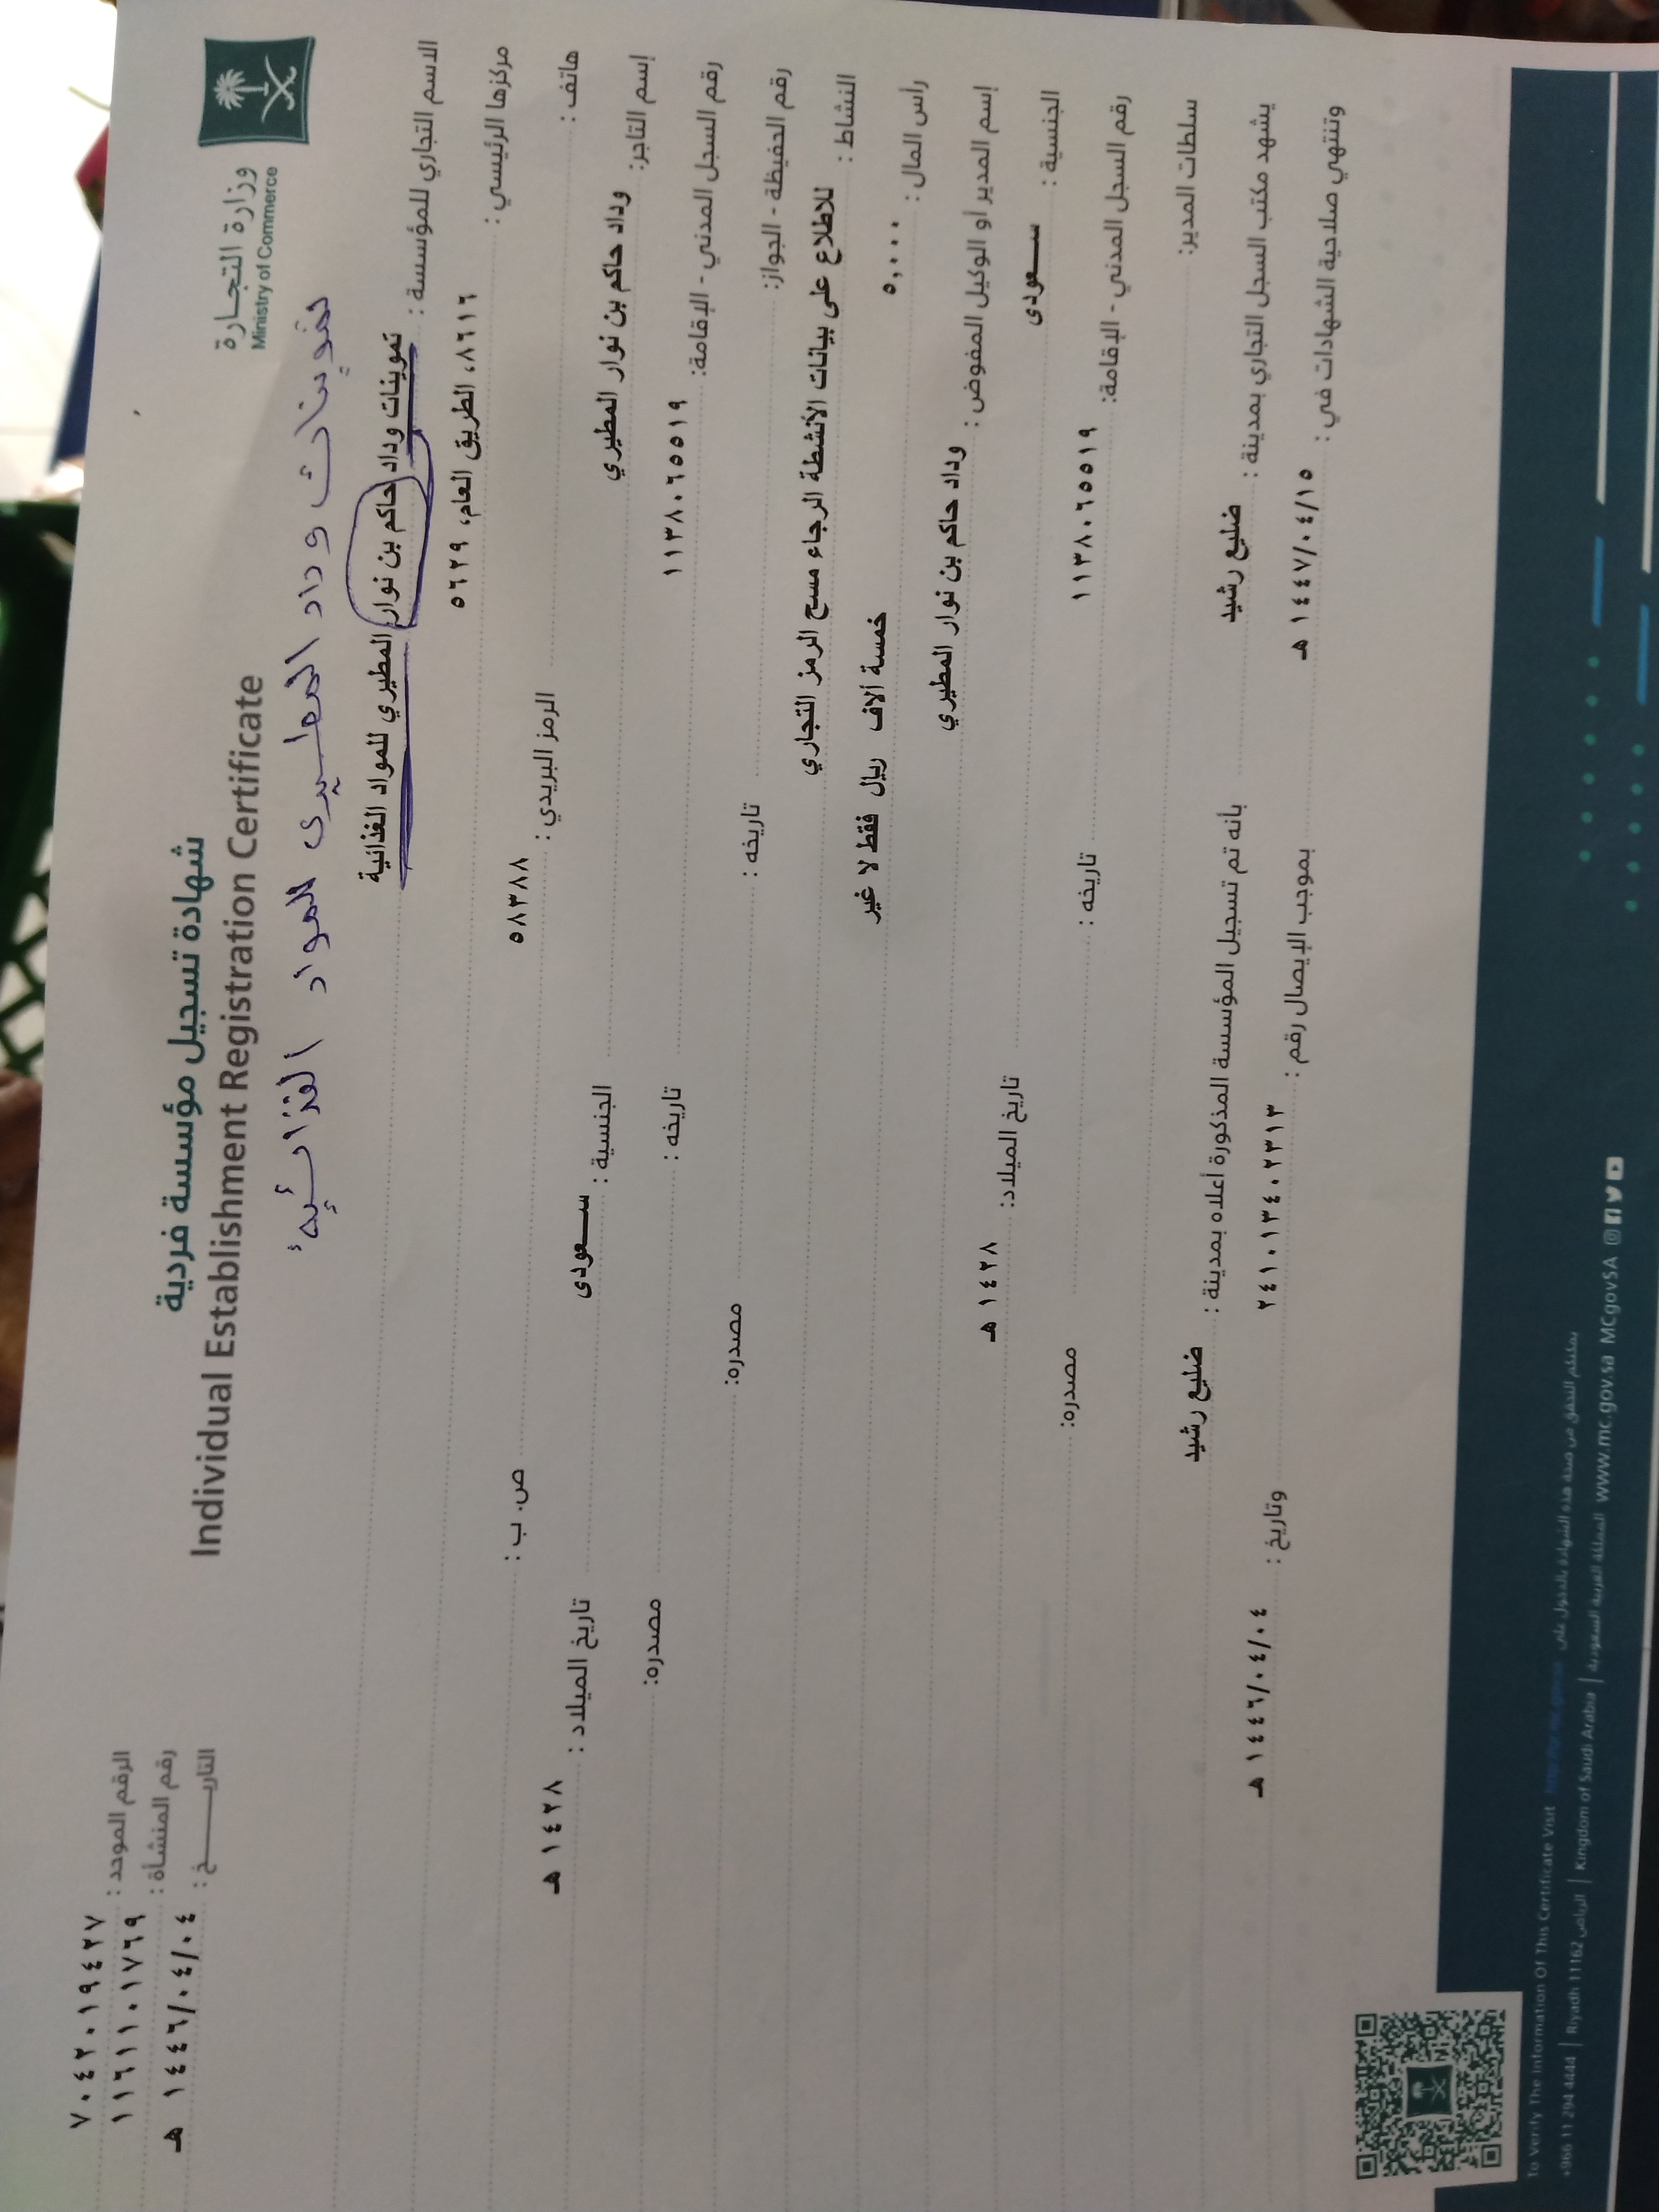 وزارة التجـــارة
Ministry of Commerce
شهادة تسجيل مؤسسة فردية
Individual Establishment Registration Certificate
الرقم الموحد : ٧٠٤٢٠١٩٤٢٧
رقم المنشأة : ١١٦١١٠١٧٦٩
التاريـــــخ : ١٤٤٦/٠٤/٠٤ هـ
تموينات وداد المطيري للمواد الغذائية
الاسم التجاري للمؤسسة : تموينات وداد حاكم بن نوار المطيري للمواد الغذائية
مركزها الرئيسي : ٨٦١٦، الطريق العام، ٥٦٢٩
هاتف : الرمز البريدي : ٥٨٣٨٨ ص. ب :
إسم التاجر: وداد حاكم بن نوار المطيري الجنسية : ســـعودى تاريخ الميلاد : ١٤٢٨ هـ
رقم السجل المدني - الإقامة: ١١٣٨٠٦٥٥١٩ تاريخه : مصدره:
رقم الحفيظة - الجواز: تاريخه : مصدره:
النشاط : للاطلاع على بيانات الأنشطة الرجاء مسح الرمز التجاري
رأس المال : ٥,٠٠٠ خمسة آلاف ريال فقط لا غير
إسم المدير أو الوكيل المفوض : وداد حاكم بن نوار المطيري تاريخ الميلاد: ١٤٢٨ هـ
الجنسية : ســـعودى
رقم السجل المدني - الإقامة: ١١٣٨٠٦٥٥١٩ تاريخه : مصدره:
سلطات المدير:
يشهد مكتب السجل التجاري بمدينة : ضليع رشيد بأنه تم تسجيل المؤسسة المذكورة أعلاه بمدينة : ضليع رشيد
وتنتهي صلاحية الشهادات في : ١٤٤٧/٠٤/١٥ هـ بموجب الإيصال رقم : ٢٤١٠١٣٤٠٢٣١٣ وتاريخ : ١٤٤٦/٠٤/٠٤ هـ
To Verify The Information Of This Certificate Visit يمكنكم التحقق من صحة هذه الشهادة بالدخول على
+966 11 294 4444 | Riyadh 11162 الرياض | Kingdom of Saudi Arabia المملكة العربية السعودية | www.mc.gov.sa MCgovSA